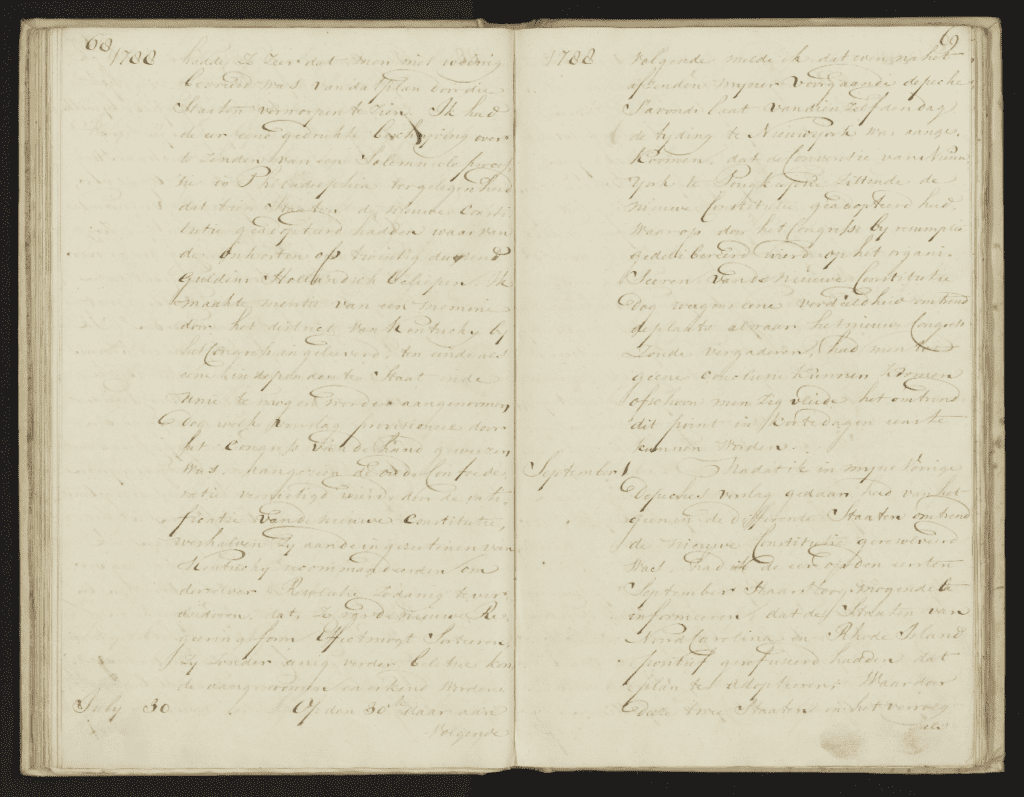 68
1788
hadde, Zeer dat men niet weinig
van dat plan door die
Staaten verworpen te zien. Ik had
de eer eene gedrukte beschryving over
te zenden van een Solemneele process
tie te Philadelphia ter gelegenheid
dat tien Staaten de nieuwe Consti
tutie geadopteerd hadden waar van
de onkosten op twintig duysend
guldens Hollandsch beliepen. Ik
maakte mentie van een memorie
door het district van Kentucky by
het Congress ingeleverd, ten einde als
een Independente Staat in de
Unie te mogen worden aangenomen
Dog welk verslag door
het Congress van de hand gewezen
was, aangezien de oude Confede
ratie vernietigd wierd door de rati
ficatie van de nieuwe Constitutie,
weshalven zy aan de ingezetenen van
Kentucky recommandeerden om
derzelver Resolutie zodanig te ver
, dat, zo dra de nieuwe Re
geeringsform Effect mogt Sorteeren,
Zy zonder eenig verder
de aangenomen en erkend worden
July 30 Op den 30e daar aan
Volgende
69
1788
Volgende melde ik dat even na het
afzenden myner voorgaande depeche
S'avonds laat van dien zelfden dag
de tyding te Nieuwyork was aange„
komen, dat de Conventie van Nieuw
York te Pougkapsie zittende de
nieuwe Constitutie geadopteerd had.
Waar op door het Congress by resumptie
gedelibereerd wierd op het organi„
seeren van de nieuwe Constitutie
Dog wegens eene verdeeldheid omtrend
de plaats alwaar het nieuwe Congress
zoude vergaderen, had men tot
geene Conclusie kunnen komen
ofschoon men zig vleide het omtrend
dit point in korte dagen eens te
kunnen worden.
September 1 Nadat ik in myne vorige
Depeches verslag gedaan had van het
geenen de differente Staaten omtrend
de nieuwe Constitutie geresolveerd
was, had ik de eer op den eersten
September Haar Hoog Mogende te
informeeren, dat de Staaten van
Nord Carolina en Rhode Island
positief gerefuseerd hadden dat
plan te adopteeren; Waar door
deze twee Staaten in het vervolg